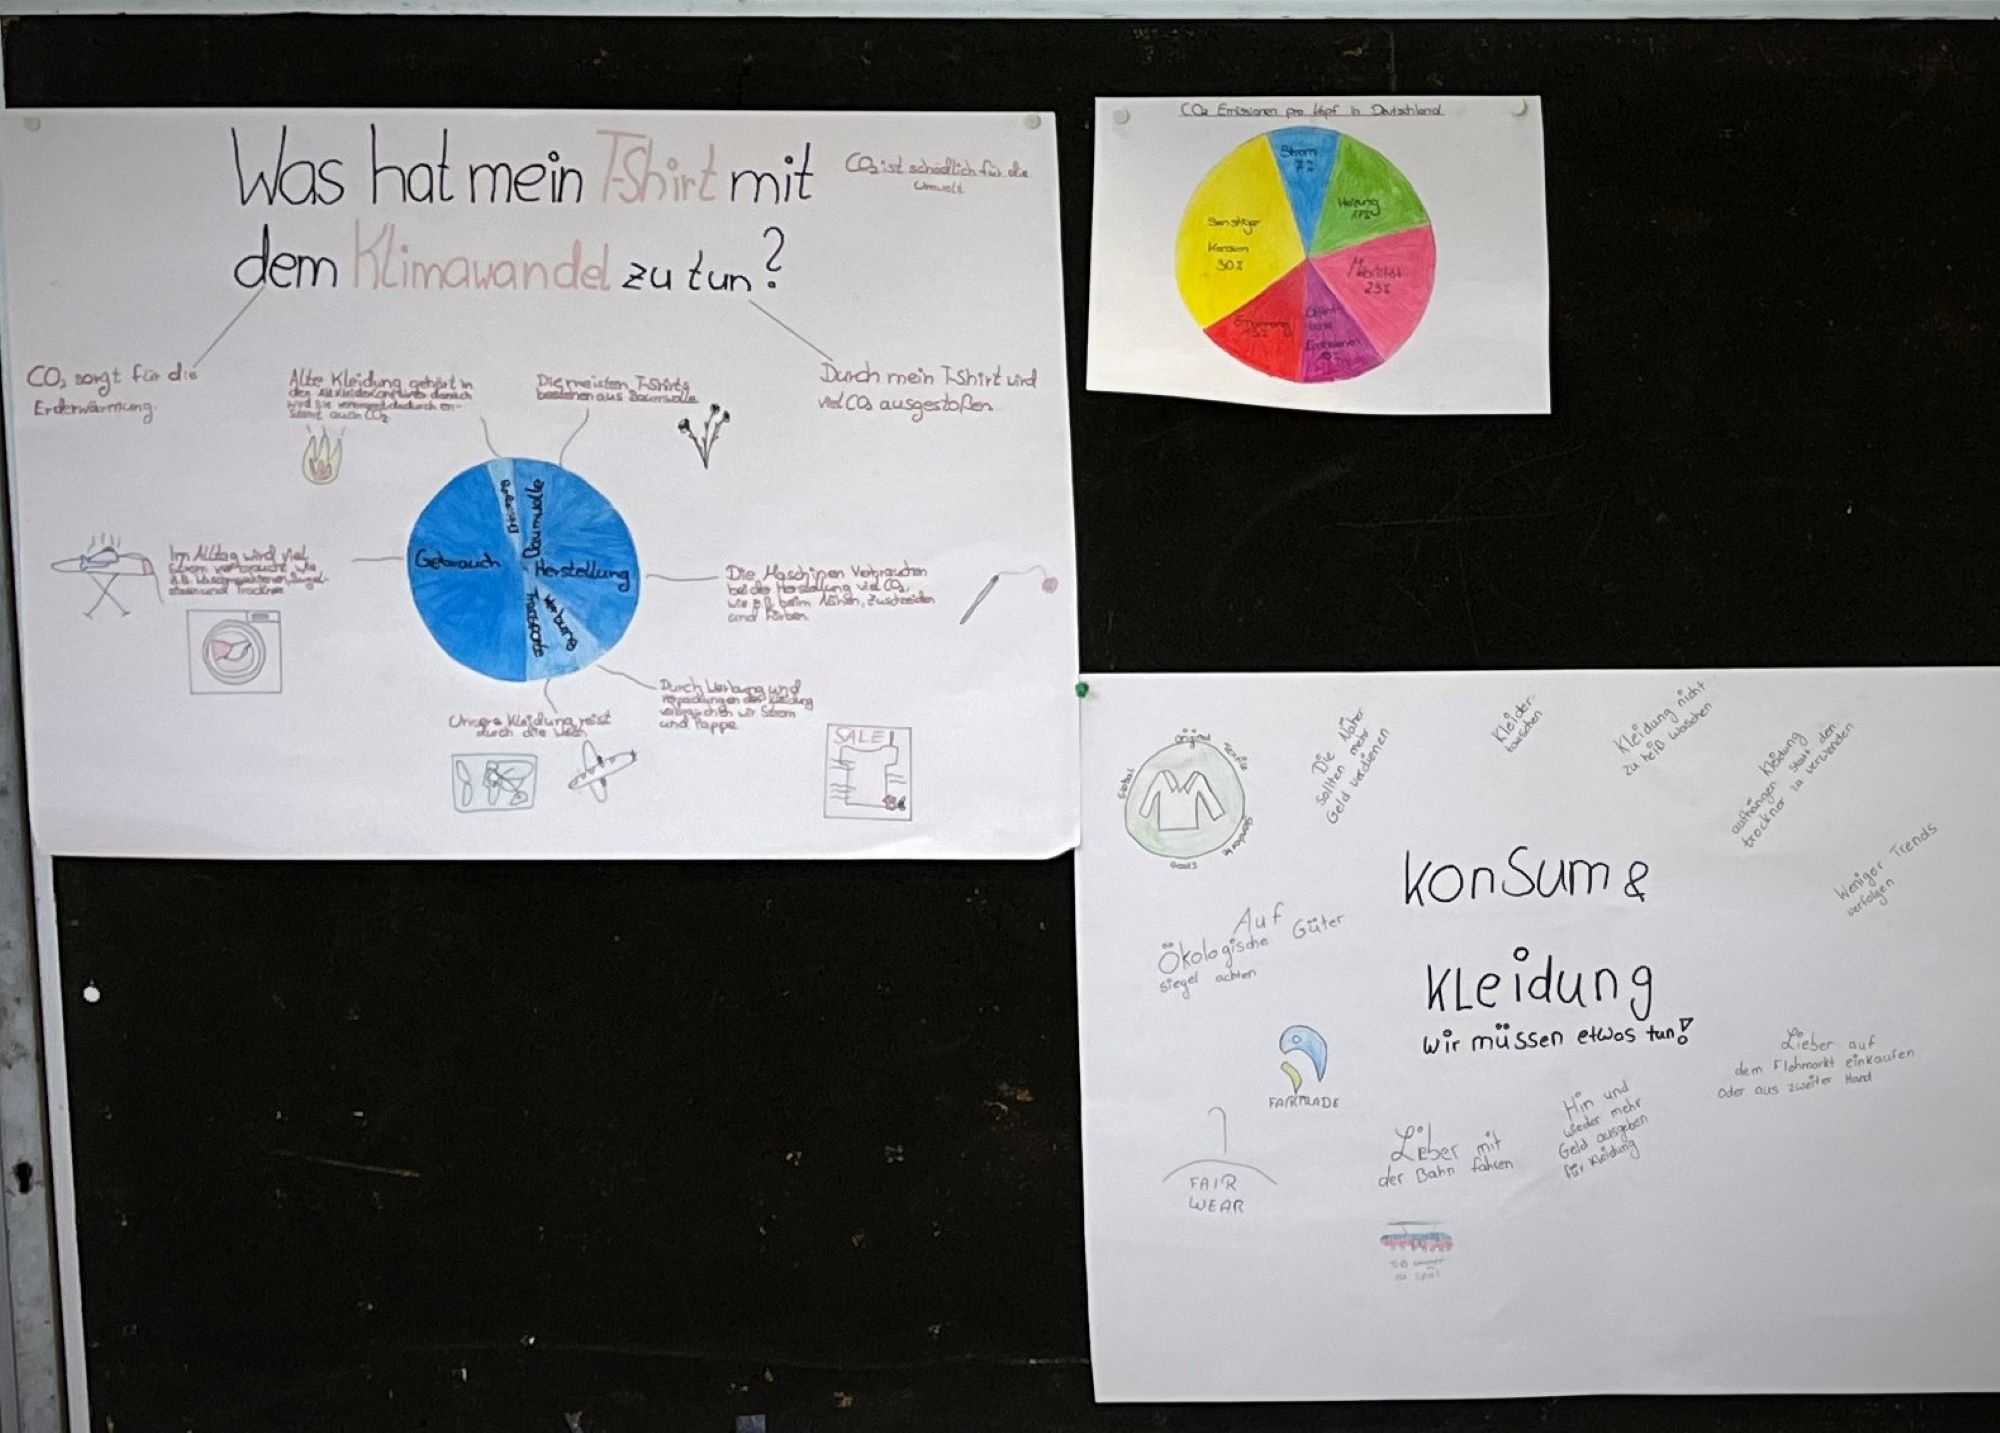 Was hat mein T-Shirt mit
dem Klimawandel zu tun?
CO₂ ist schädlich für die
Umwelt
CO₂ sorgt für die
Erderwärmung.
Alte Kleidung gehört in
den
wird sie
auch CO₂
Die meisten T-Shirts
bestehen aus Baumwolle
Durch mein T-Shirt wird
viel CO₂ ausgestoßen
Gebrauch
Baumwolle
Herstellung
Werbung
Transporte
Im Alltag wird viel
Strom verbraucht wie
z.B. Waschmaschinen, Bügel-
eisen und Trockner
Die Maschinen verbrauchen
bei der Herstellung viel CO₂,
wie z.B. beim Nähen, Zuschneiden
und Färben
Durch Werbung und
Verpackungen der Kleidung
verbrauchen wir Strom
und Pappe
Unsere Kleidung reist
durch die Welt
SALE!
CO₂ Emissionen pro Kopf in Deutschland
Strom
7%
Heizung
17%
Mobilität
23%
Sonstiger
Konsum
30%
Ernährung
15%
Emissionen
Global
Textile
Die Näher
sollten mehr
Geld verdienen
Kleider-
tauschen
Kleidung nicht
zu heiß waschen
Kleidung
aufhängen statt den
trockner zu verwenden
Weniger Trends
verfolgen
Konsum &
Kleidung
wir müssen etwas tun!
Auf
Ökologische Güter
siegel achten
FAIRTRADE
FAIR
WEAR
Lieber mit
der Bahn fahren
DB immer
zu spät
Hin und
wieder mehr
Geld ausgeben
für Kleidung
Lieber auf
dem Flohmarkt einkaufen
oder aus zweiter Hand